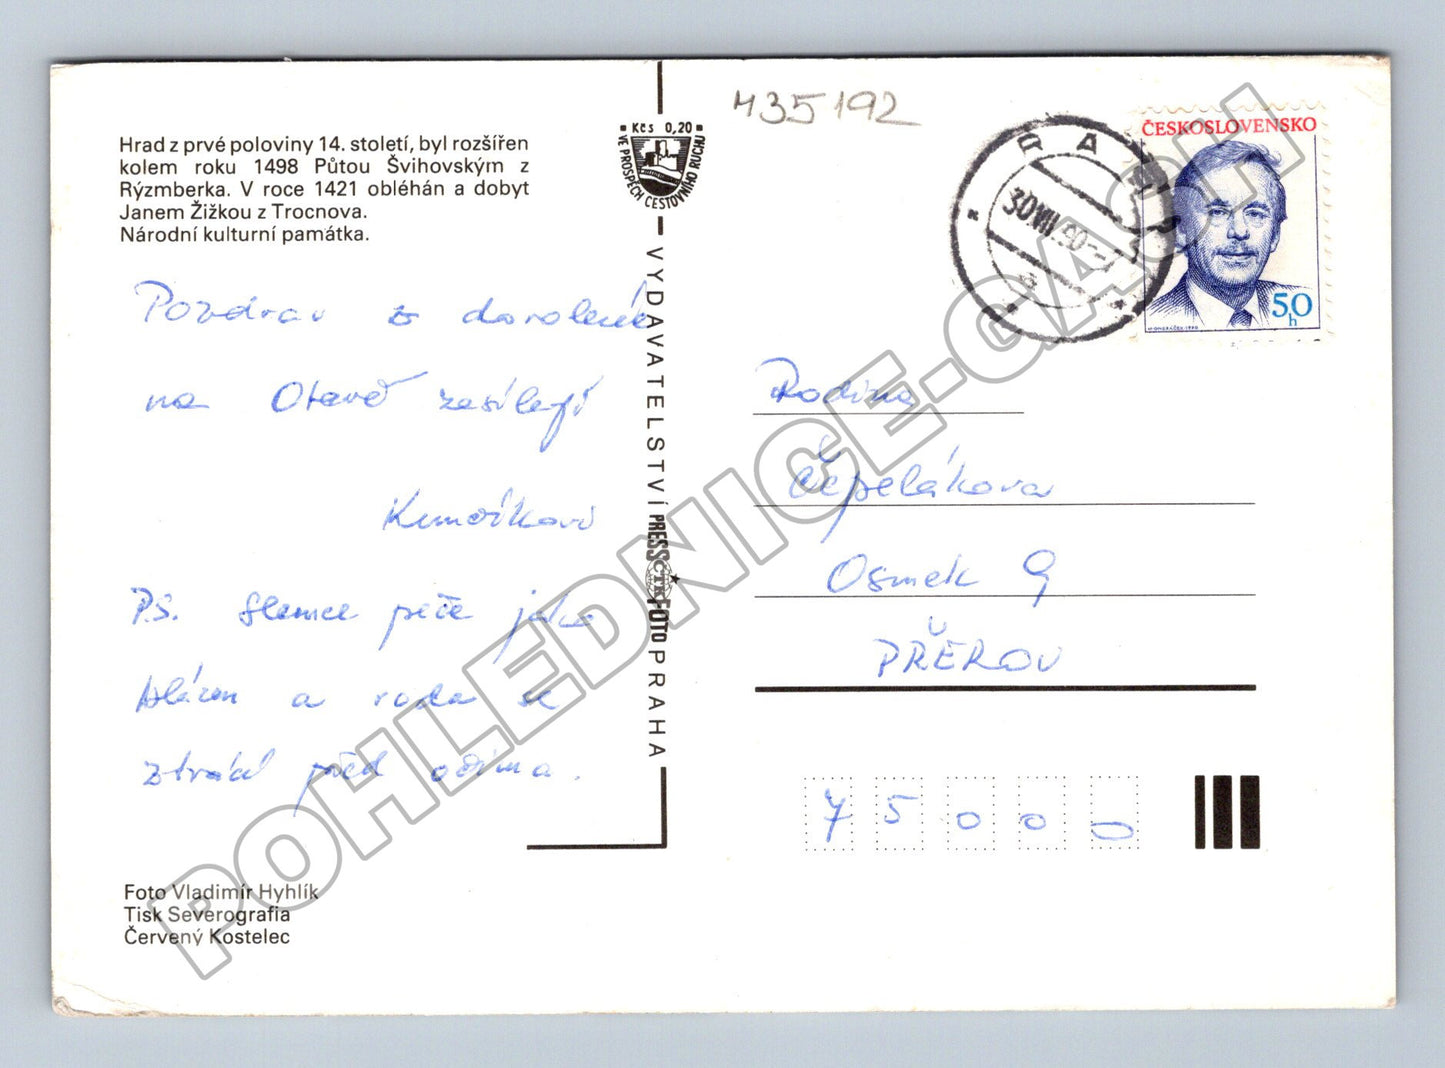 435192
Hrad z prvé poloviny 14. století, byl rozšířen
kolem roku 1498 Půtou Švihovským z
Rýzmberka. V roce 1421 obléhán a dobyt
Janem Žižkou z Trocnova.
Národní kulturní památka.
Kčs 0,20
VE PROSPĚCH CESTOVNÍHO RUCHU
ČESKOSLOVENSKO
50
h
30.VIII.90
Pozdrav z dovolené
na Otavě zasílají
PS. Slunce peče jako
blázen a voda se
ztrácí před očima.
VYDAVATELSTVÍ PRESSFOTO PRAHA
ČTK
Rodina
Čepelákova
Osmek 9
PŘEROV
75000
Foto Vladimír Hyhlík
Tisk Severografia
Červený Kostelec
POHLEDNICE-GASH